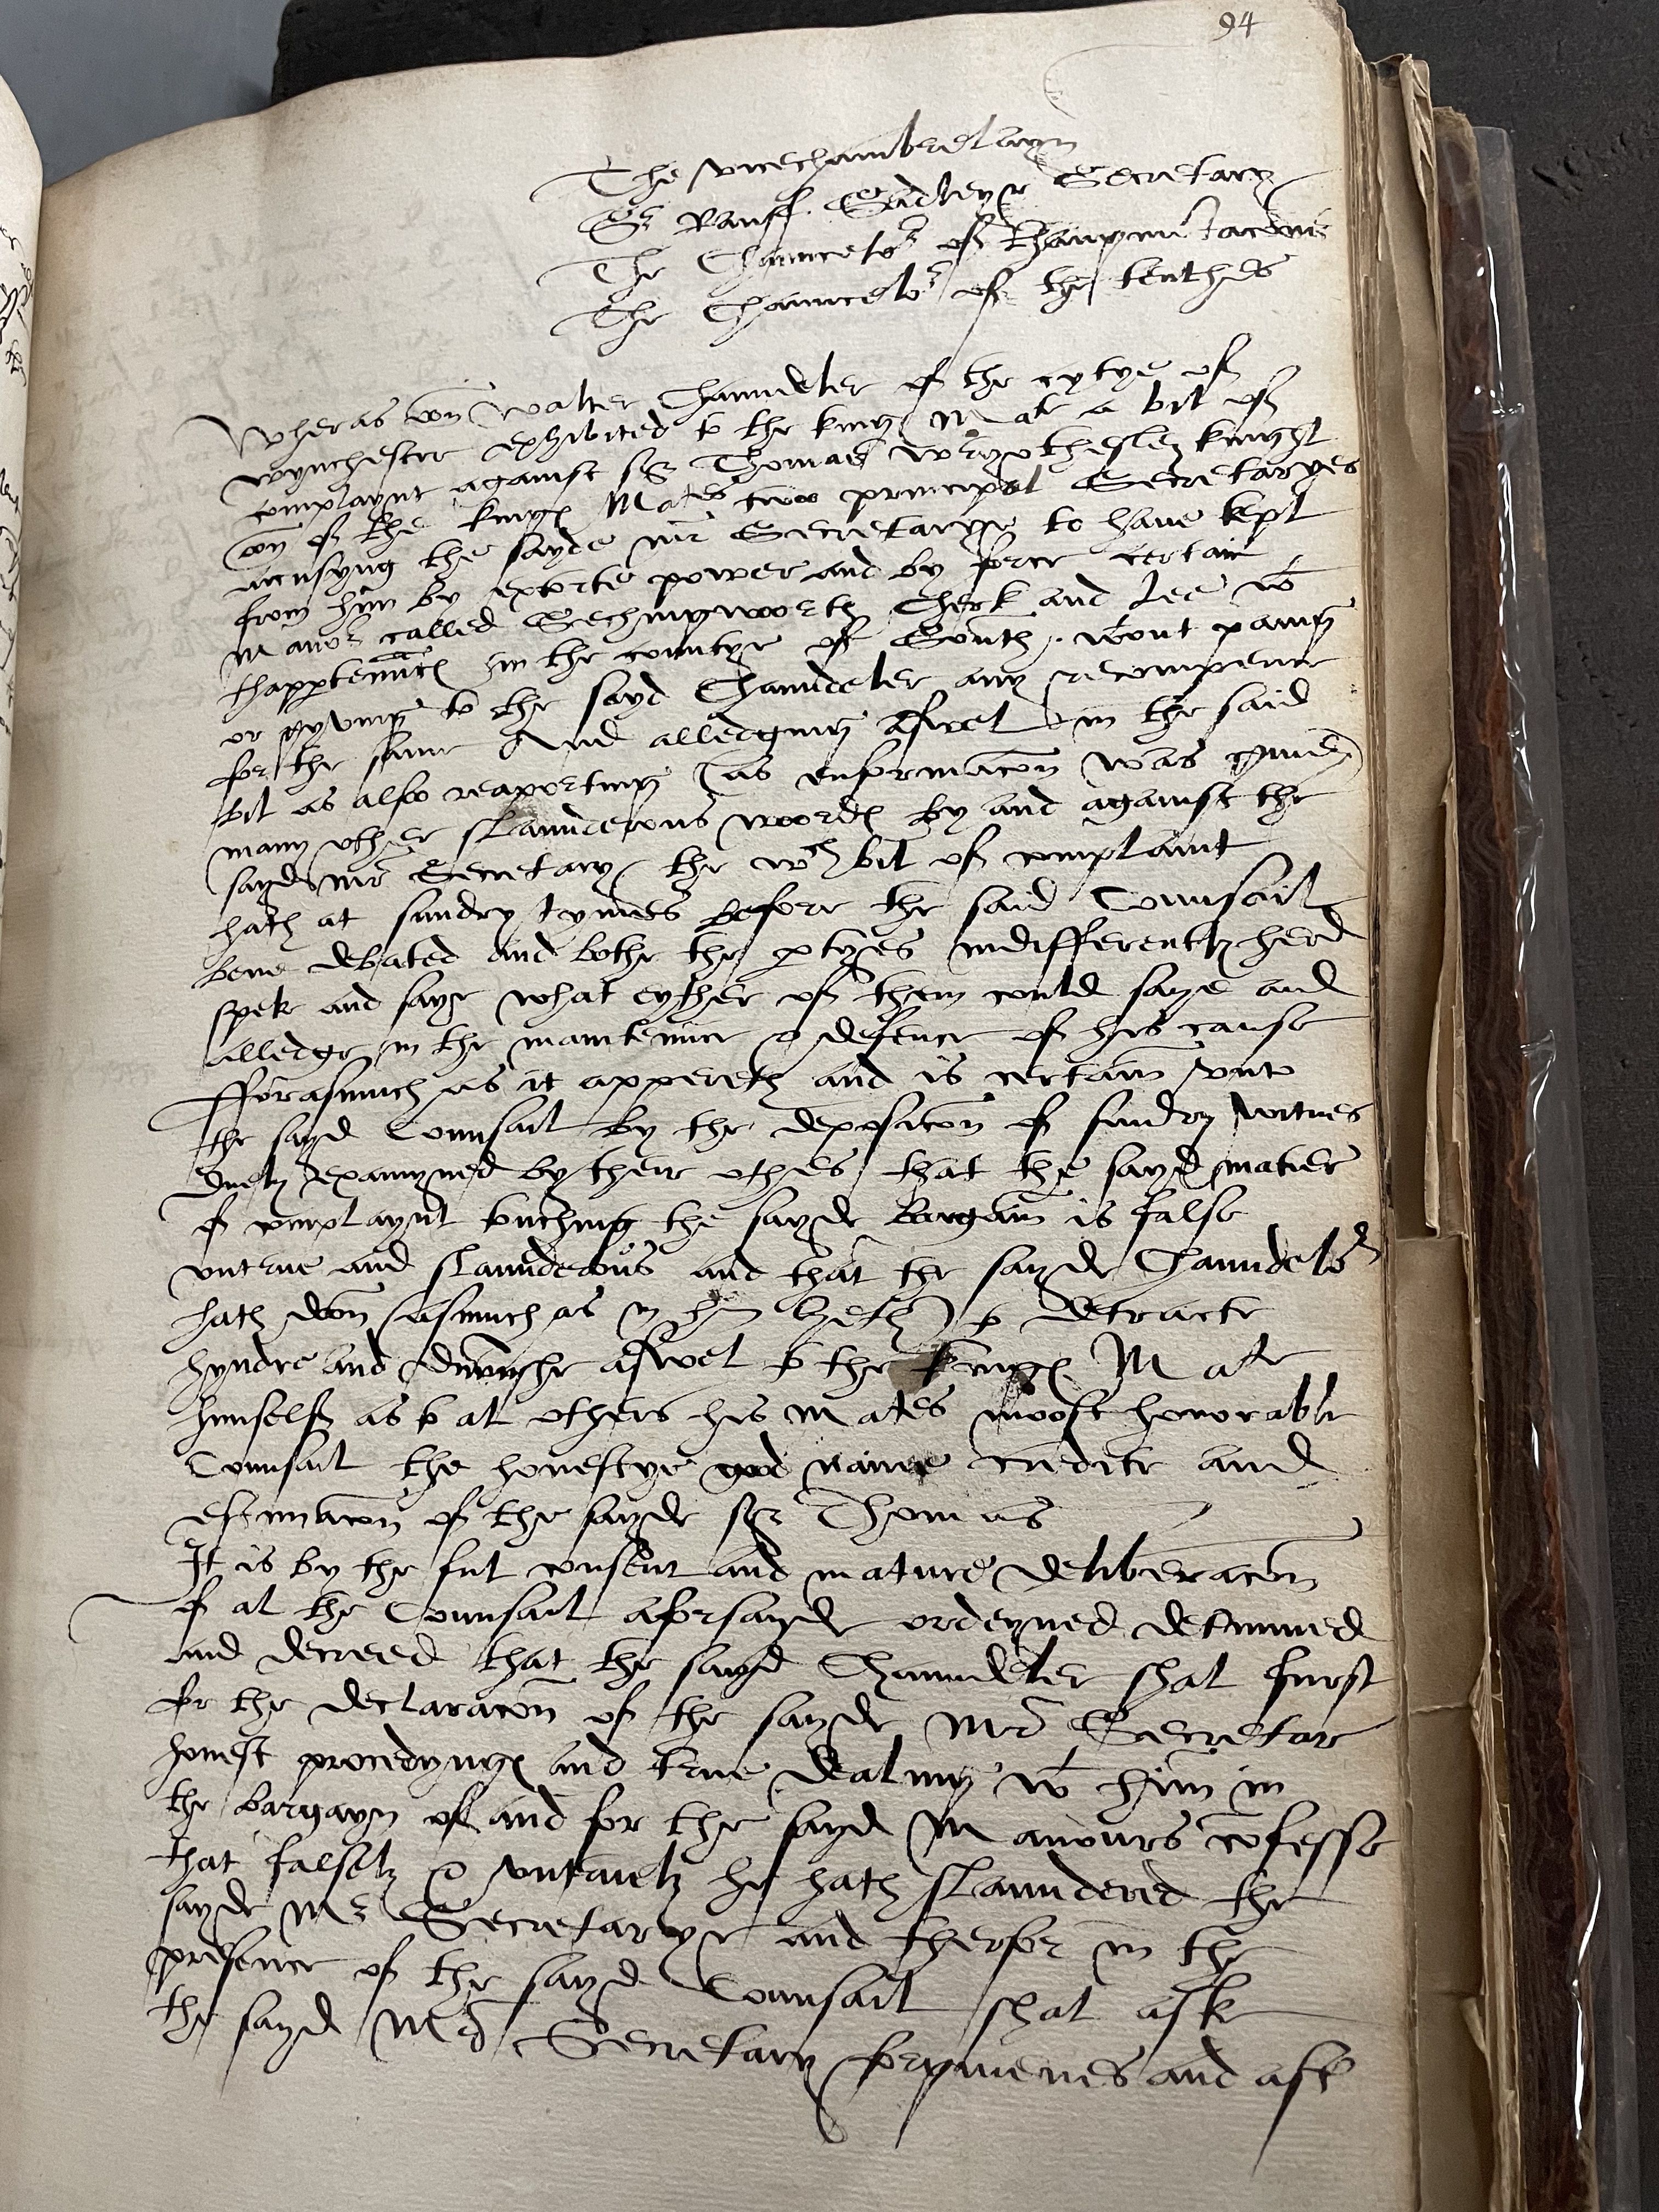 94
The vicechamberlayn
Sr Rauff Sadleyr Secretary
The Chauncelor of thaugmẽtacõns
The Chauncelor of the tenthes
Wheras oon Walter Chaundeler of the cytye of
Wynchestre exhibited to the kingꝭ Mate a bil of
complaynt against Sr Thomas Wryothesley knyght
oon of the kingꝭ Mates two principal Secretaryes
accusyng the sayde Mr Secretarye to have kept
from him by extorte power and by force certain
Manors called Sechingworth, Cherk and Lee wt
thapptenncꝭ in the countye of Southt, wtout paing
or gyving to the sayd Chaundeler any recompence
for the same And alledging aswel in the said
bil as also reaporting (as enformacõn was given)
many other slaunderous woordꝭ by and against the
sayd Mr Secretary, the wch bil of complaint
hath at sundry tymes before the said Counsail
bene debated and bothe the ꝑtyes indifferently herd
spek and saye what eyther of them could saye and
alledge in the maintennce & defence of his cause
Fforasmuch as it appereth and is certain unto
the sayd Counsail by the deposicõn of sundry witnes
duely examyned by their othes that the sayd matier
of complaynt touching the sayde Bargain is false
untrue and slaunderous and that the sayde Chaundeler
hath doon (asmuch as in him lyeth) to detracte
hyndre and dimynishe aswel to the kingꝭ Mate
himself as to al others his Mates moost honorable
Counsail the honestye good name credite and
estimacõn of the sayde Sr Thomas
It is by the ful consent and mature deliberacõn
of al the Counsail aforsayde ordeyned detmined
and decreed that the sayd Chaundeler shal furst
for the declaracõn of the sayde Mr Secretar
honest procedyngꝭ and true dealing wt him in
the bargayn of and for the sayd Manours cõfesse
that falsely & untruely he hath slaundered the
sayde Mr Secretarye and therfor in the
presence of the sayd Counsail shal aske
the sayd Mr Secretary forgivenes and aft